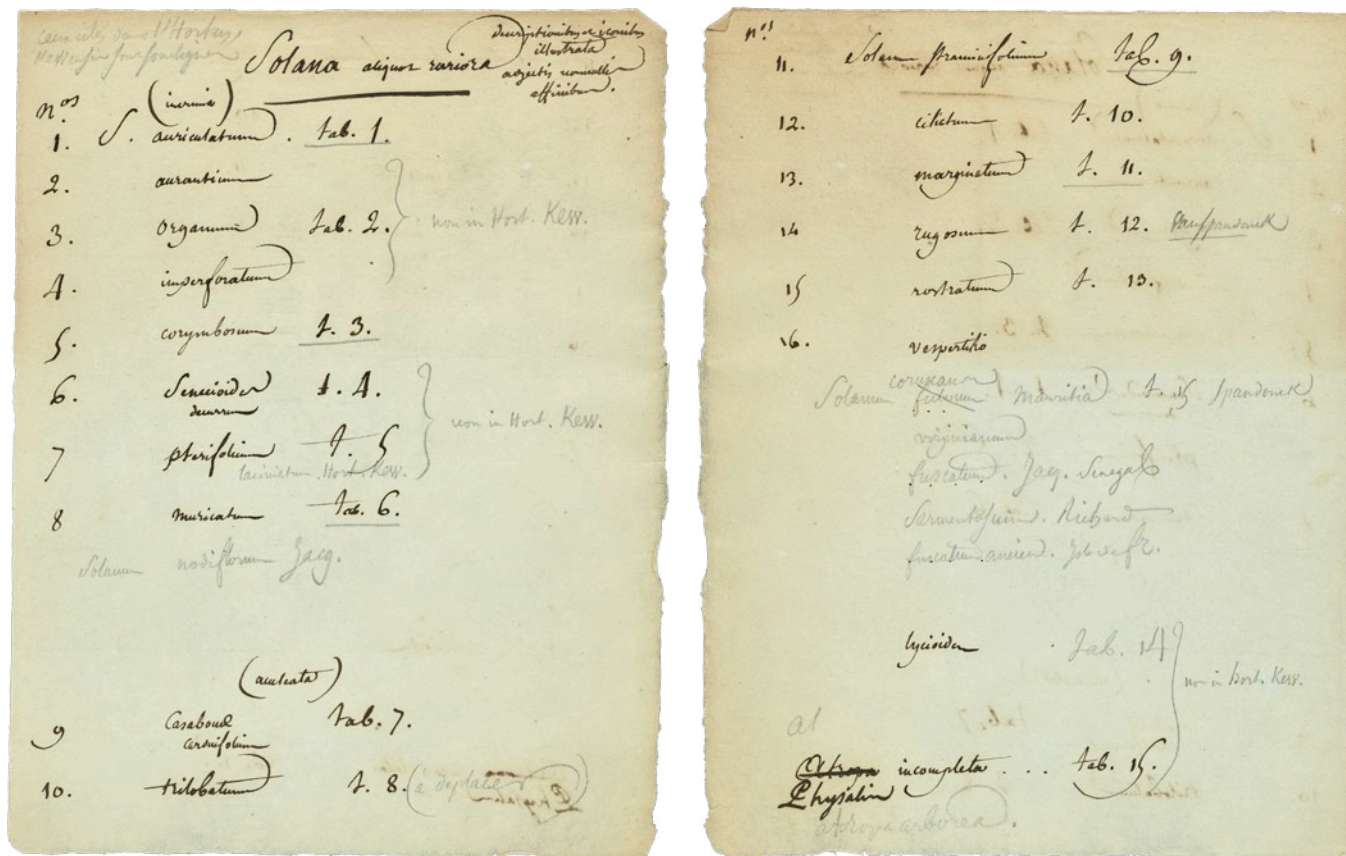 Solana aliquot rariora
descriptionibus et iconibus
illustrata
adjectis nonnullis
affinibus.
n.os
(inermia)
1. S. auriculatum. tab. 1.
2. aurantium
3. organum tab. 2.
non in Hort. Kew.
4. imperforatum
5. corymbosum t. 3.
6. Senecioides t. 4.
decurrens
non in Hort. Kew.
7 pterifolium t. 5
laciniatum. Hort. Kew.
8 muricatum tab. 6.
Solanum nodiflorum Jacq.
(aculeata)
9 Casabonae tab. 7.
carduifolium
10. trilobatum t. 8. (à déplacer)
n.os
11. Solanum stramonifolium tab. 9.
12. ciliatum t. 10.
13. marginatum t. 11.
14 rugosum t. 12. Vanspaendonck
15 rostratum t. 13.
16. vespertilio
coruscans
Solanum fulvum Mauritia t. 15 Spandonck
virginianum
fuscatum. Jacq. Senegal
Sarmentosum. Richard
lycioides tab. 14
non in Hort. Kew.
at
Atropa incompleta ... tab. 15.
Physalis
atropa arborea.